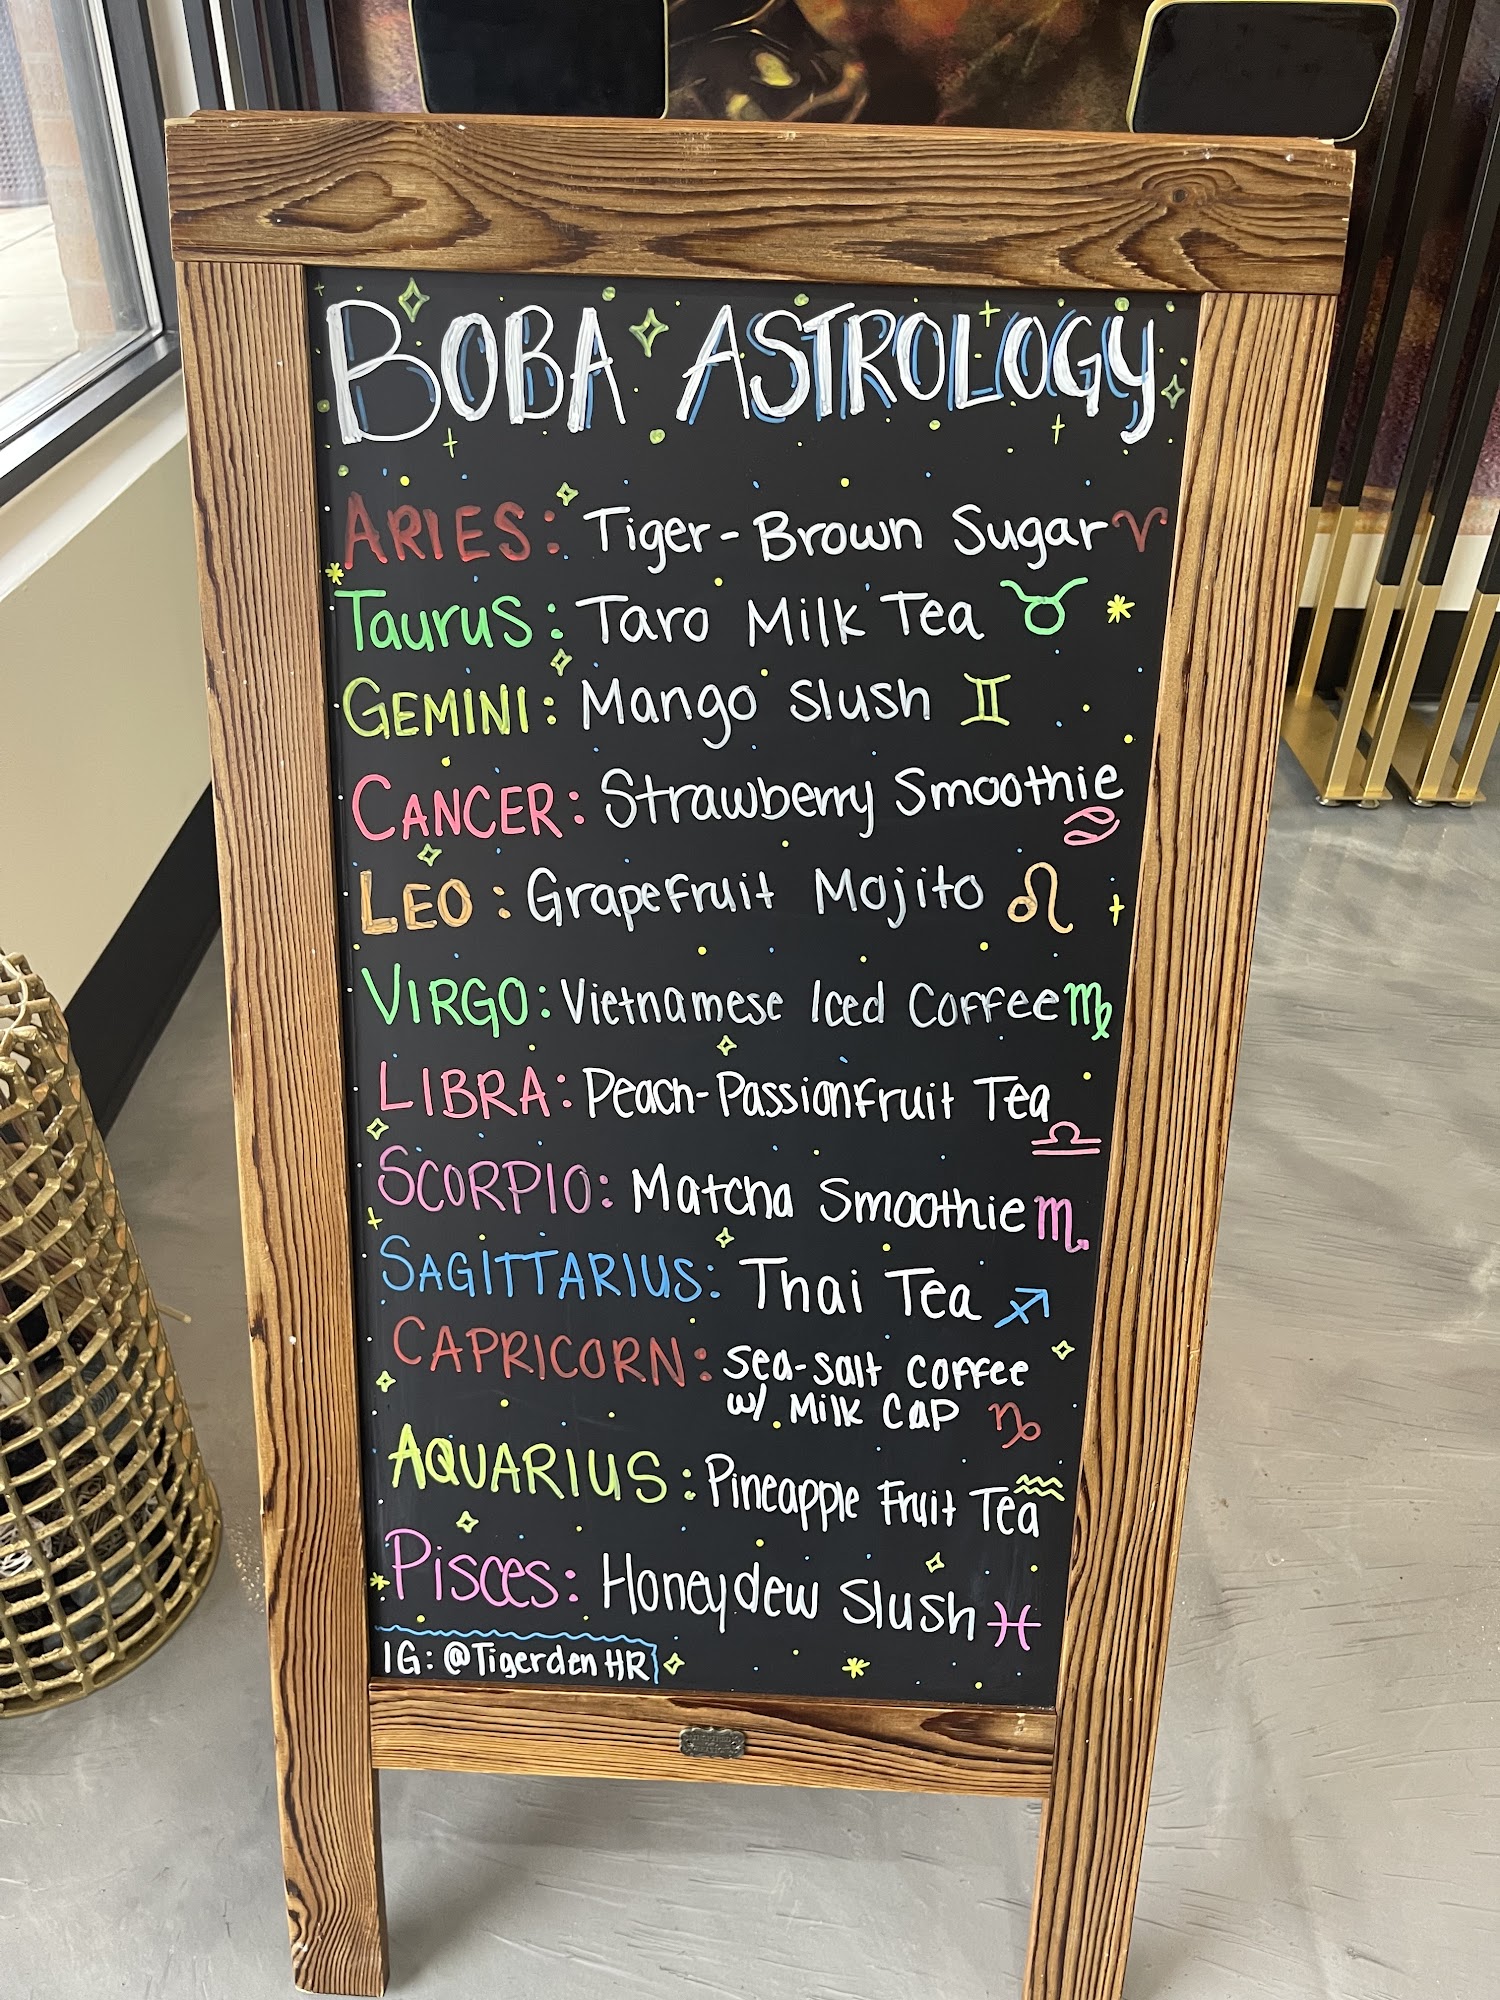 BOBA ASTROLOGY
ARIES: Tiger-Brown Sugar ♈
Taurus: Taro Milk Tea ♉
GEMINI: Mango Slush ♊
CANCER: Strawberry Smoothie ♋
LEO: Grapefruit Mojito ♌
VIRGO: Vietnamese Iced Coffee ♍
LIBRA: Peach-Passionfruit Tea ♎
SCORPIO: Matcha Smoothie ♏
SAGITTARIUS: Thai Tea ♐
CAPRICORN: Sea-Salt Coffee
w/ Milk Cap ♑
AQUARIUS: Pineapple Fruit Tea ♒
Pisces: Honeydew Slush ♓
IG: @Tigerden HR